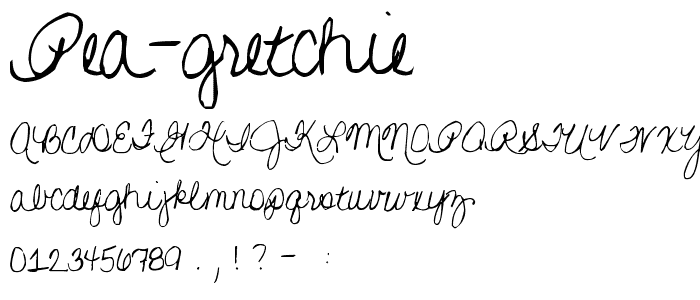 Pea-gretchie
ABCDEFGHIJKLMNOPQRSTUVWXY
abcdefghijklmnopqrstuvwxyz
0123456789.,!?- :